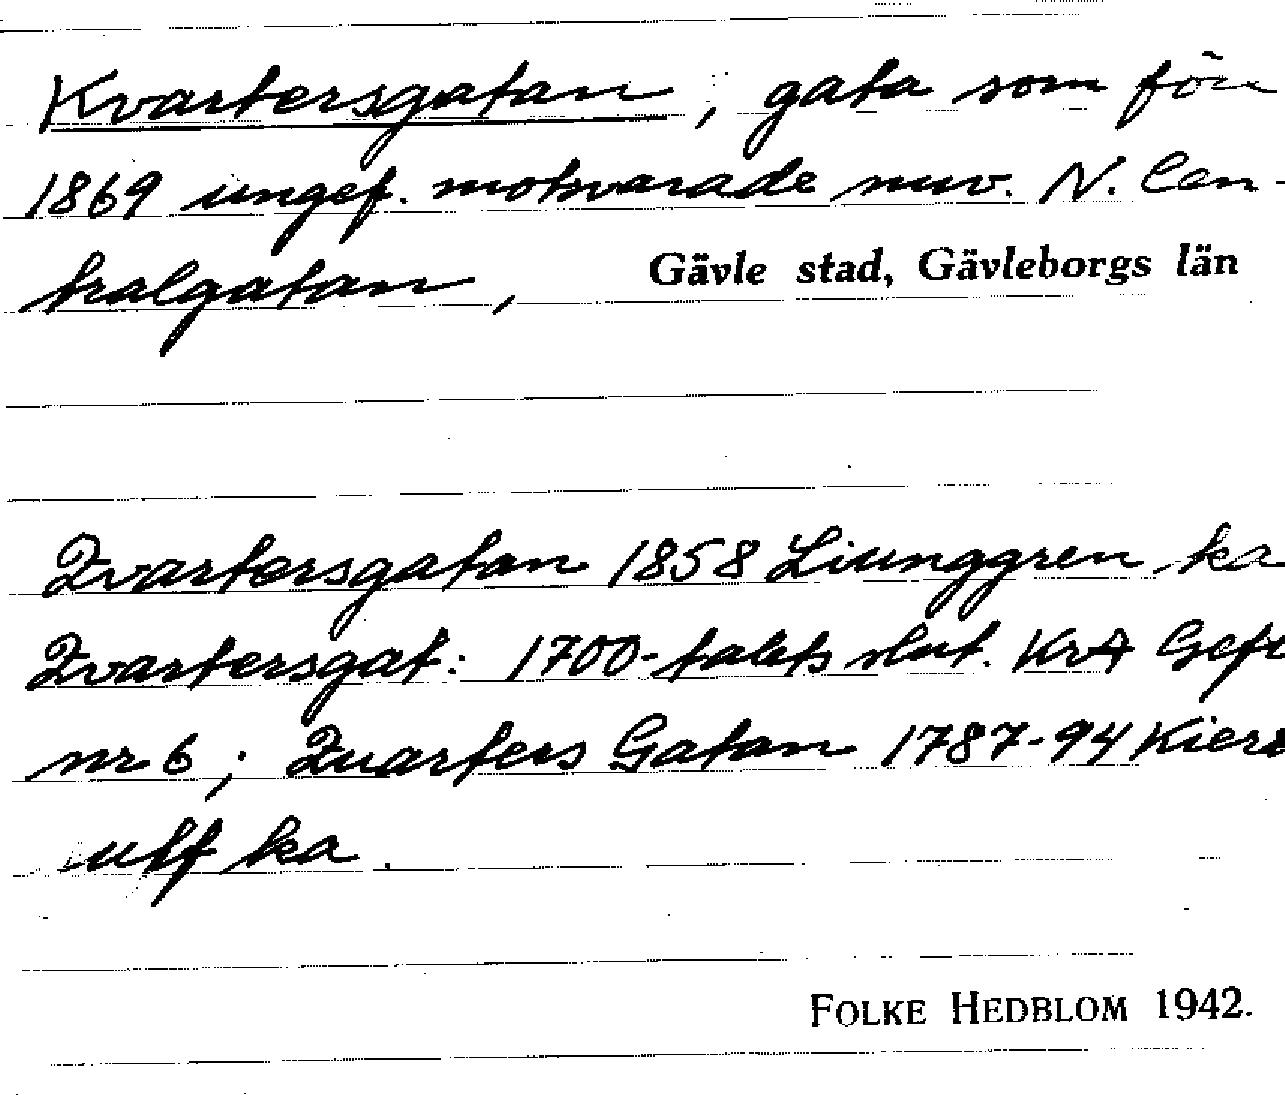 Kvartersgatan, gata som före
1869 ungef. motsvarade nuv. N. Cen-
tralgatan, Gävle stad, Gävleborgs län
Qvartersgatan 1858 Ljunggren ka
Qvartersgat: 1700-talets slut. KrA Gefle
nr 6; Quarters Gatan 1787-94 Kiers
ulff ka.
FOLKE HEDBLOM 1942.